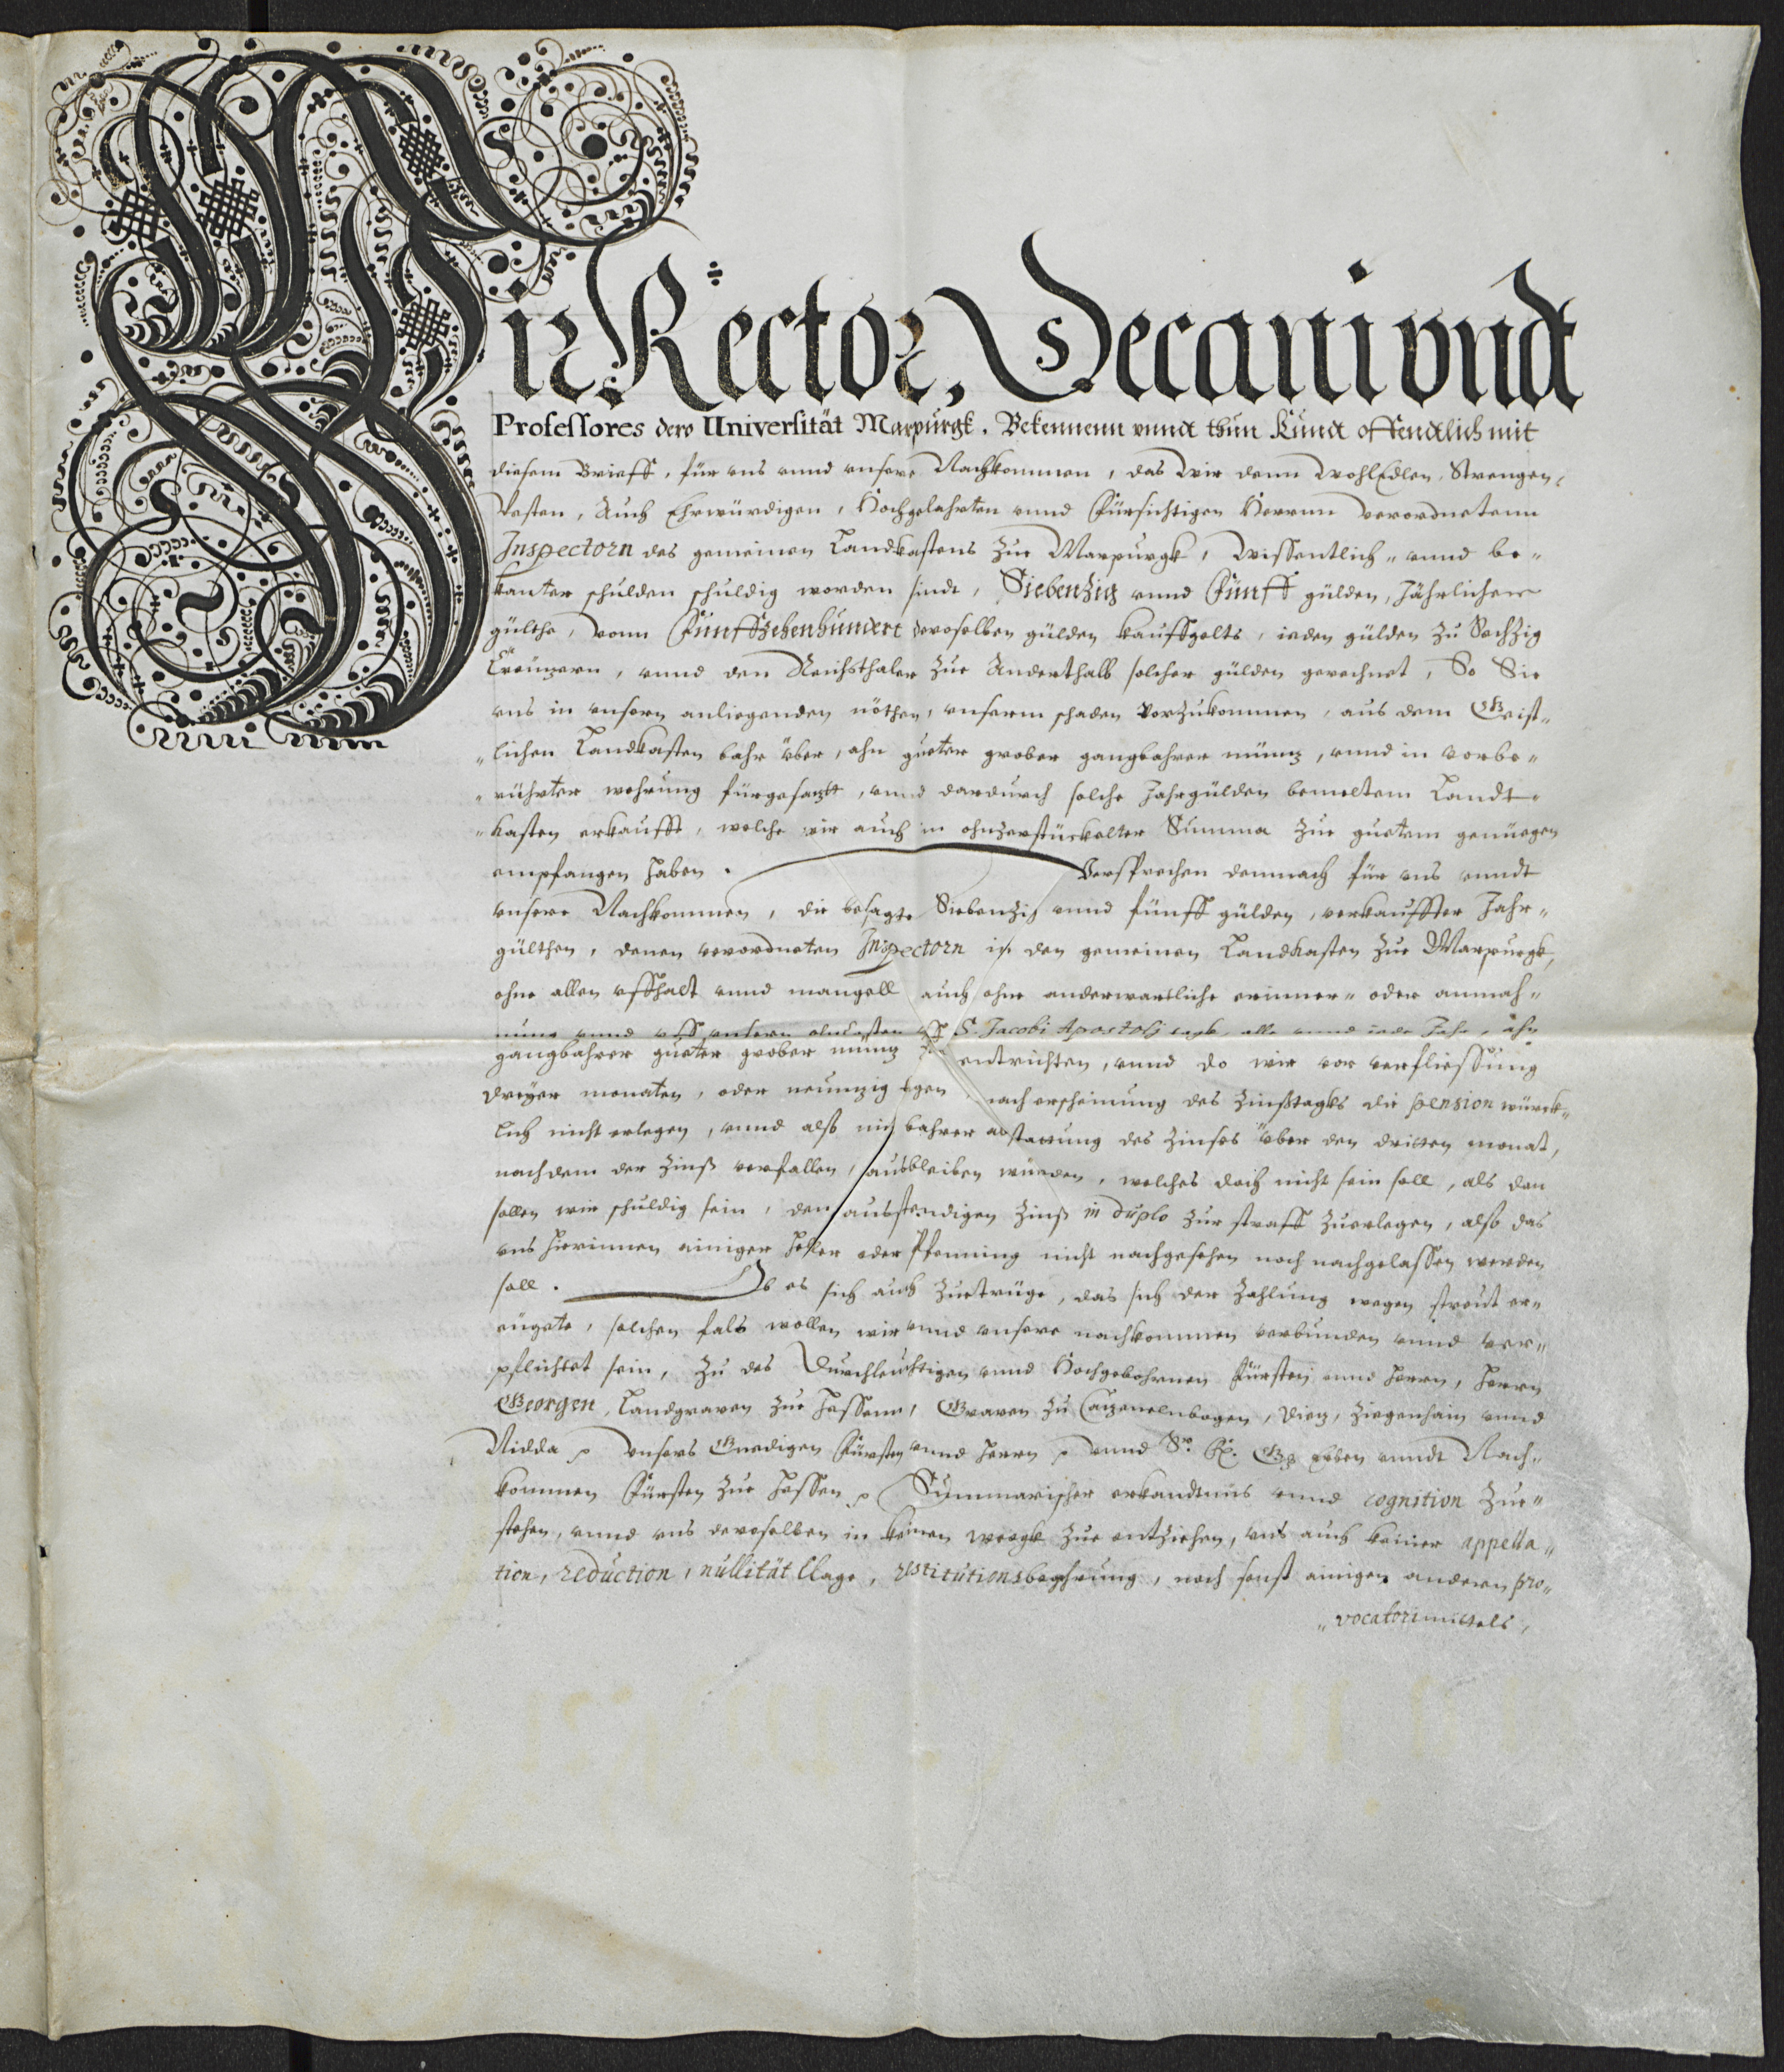 Wir Rector, Decani vndt
Professores dero Universität Marpurgk. Bekennenn vnnd thun Kundt offendtlich mit
diesem Brieff, für vns vnnd vnsere Nachkommen, das wir denn WohlEdlen, Strengen,
Vesten, Auch Ehrwürdigen, Hochgelahrten vnnd Fürsichtigen Herrnn verordnetenn
Inspectorn des gemeinen Landkastens zue Marpurgk, wissentlich- vnnd be-
kanter schulden schuldig worden sindt, Siebenzig vnnd Fünff gülden, Jährlichenn
gülthe, vonn Fünffzehenhundert deroselben gülden kauffgelts, ieden gülden zu Sechzig
Creützern, vnnd den Reichsthaler zue Anderthalb solcher gülden gerechnet, So Sie
vns in vnsern anliegenden nöthen, vnserm schaden vorzukommen, aus dem Geist-
lichen Landkasten bahr über, ahn gueter grober gangbahrer müntz, vnnd in vorbe-
rührter wehrung fürgesatzt, vnnd dardurch solche Jahrgülden bemeltem Landt-
kasten erkaufft, welche wir auch in ohnzerstückelter Summa zue guetem genüegen
empfangen haben. Versprechen demnach für vns vnndt
vnsere Nachkommen, die besagte Siebenzig vnnd fünff gülden, verkauffter Jahr-
gülthen, denen verordneten Inspectorn in den gemeinen Landkasten zue Marpurgk,
ohne allen uffhalt vnnd mangell auch ohne anderwertliche erinner- oder anmah-
nung vnnd uff vnsern uncosten uff S. Jacobi Apostolj tagk, alle vnnd iede Jahr, ahn
gangbahrer gueter grober müntz zue entrichten, vnnd do wir vor verfliessung
dreyer monaten, oder neuntzig tgen, nach erscheinung des Zinßtagks die pension würck-
lich nicht erlegen, vnnd also mit bahrer abstattung des Zinses über den dritten monat,
nachdem der Zinß verfallen, ausbleiben würden, welches doch nicht sein soll, als dan
sollen wir schuldig sein, den ausstendigen Zinß in duplo zur straff zuerlegen, also das
vns hierinnen einiger Heller oder Pfenning nicht nachgesehen noch nachgelassen werden
soll. Ob es sich auch zuetrüge, das sich der Zahlung wegen streit er-
eügete, solchen fals wollen wir vnnd vnsere nachkommen verbunden vnnd ver-
pflichtet sein, zu des Durchleuchtigen vnnd Hochgebohrnen Fürsten vnnd Herrn, Herrn
Georgen, Landgraven zue Hessenn, Graven zu Catzenelnbogen, Dietz, Ziegenhain vnnd
Nidda ꝛc Vnsers Gnedigen Fürsten vnnd Herrn ꝛc vnnd Sr. F. G. Erben vnndt Nach-
kommen Fürsten zue Hessen ꝛc Summarischer erkandtnus vnnd cognition zue-
stehen, vnnd vns deroselben in keinen weegk zue entziehen, vns auch keiner appella-
tion, reduction, nullität klage, restitutionsbegehrung, noch sonst einigen andern pro-
vocatorimittels,